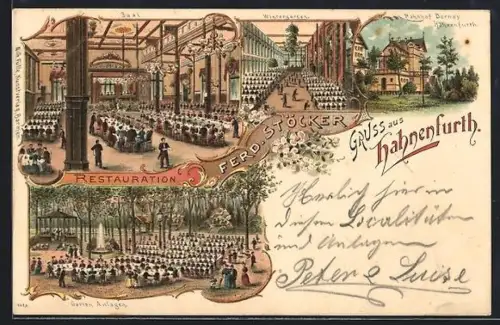 Saal
Wintergarten.
Bahnhof Dornap
Hahnenfurth.
RESTAURATION
FERD. STÖCKER
GRUSS aus
Hahnenfurth.
Garten Anlagen
Herrlich hier in
diesen Localitäten
und Anlagen
Peter & Luise